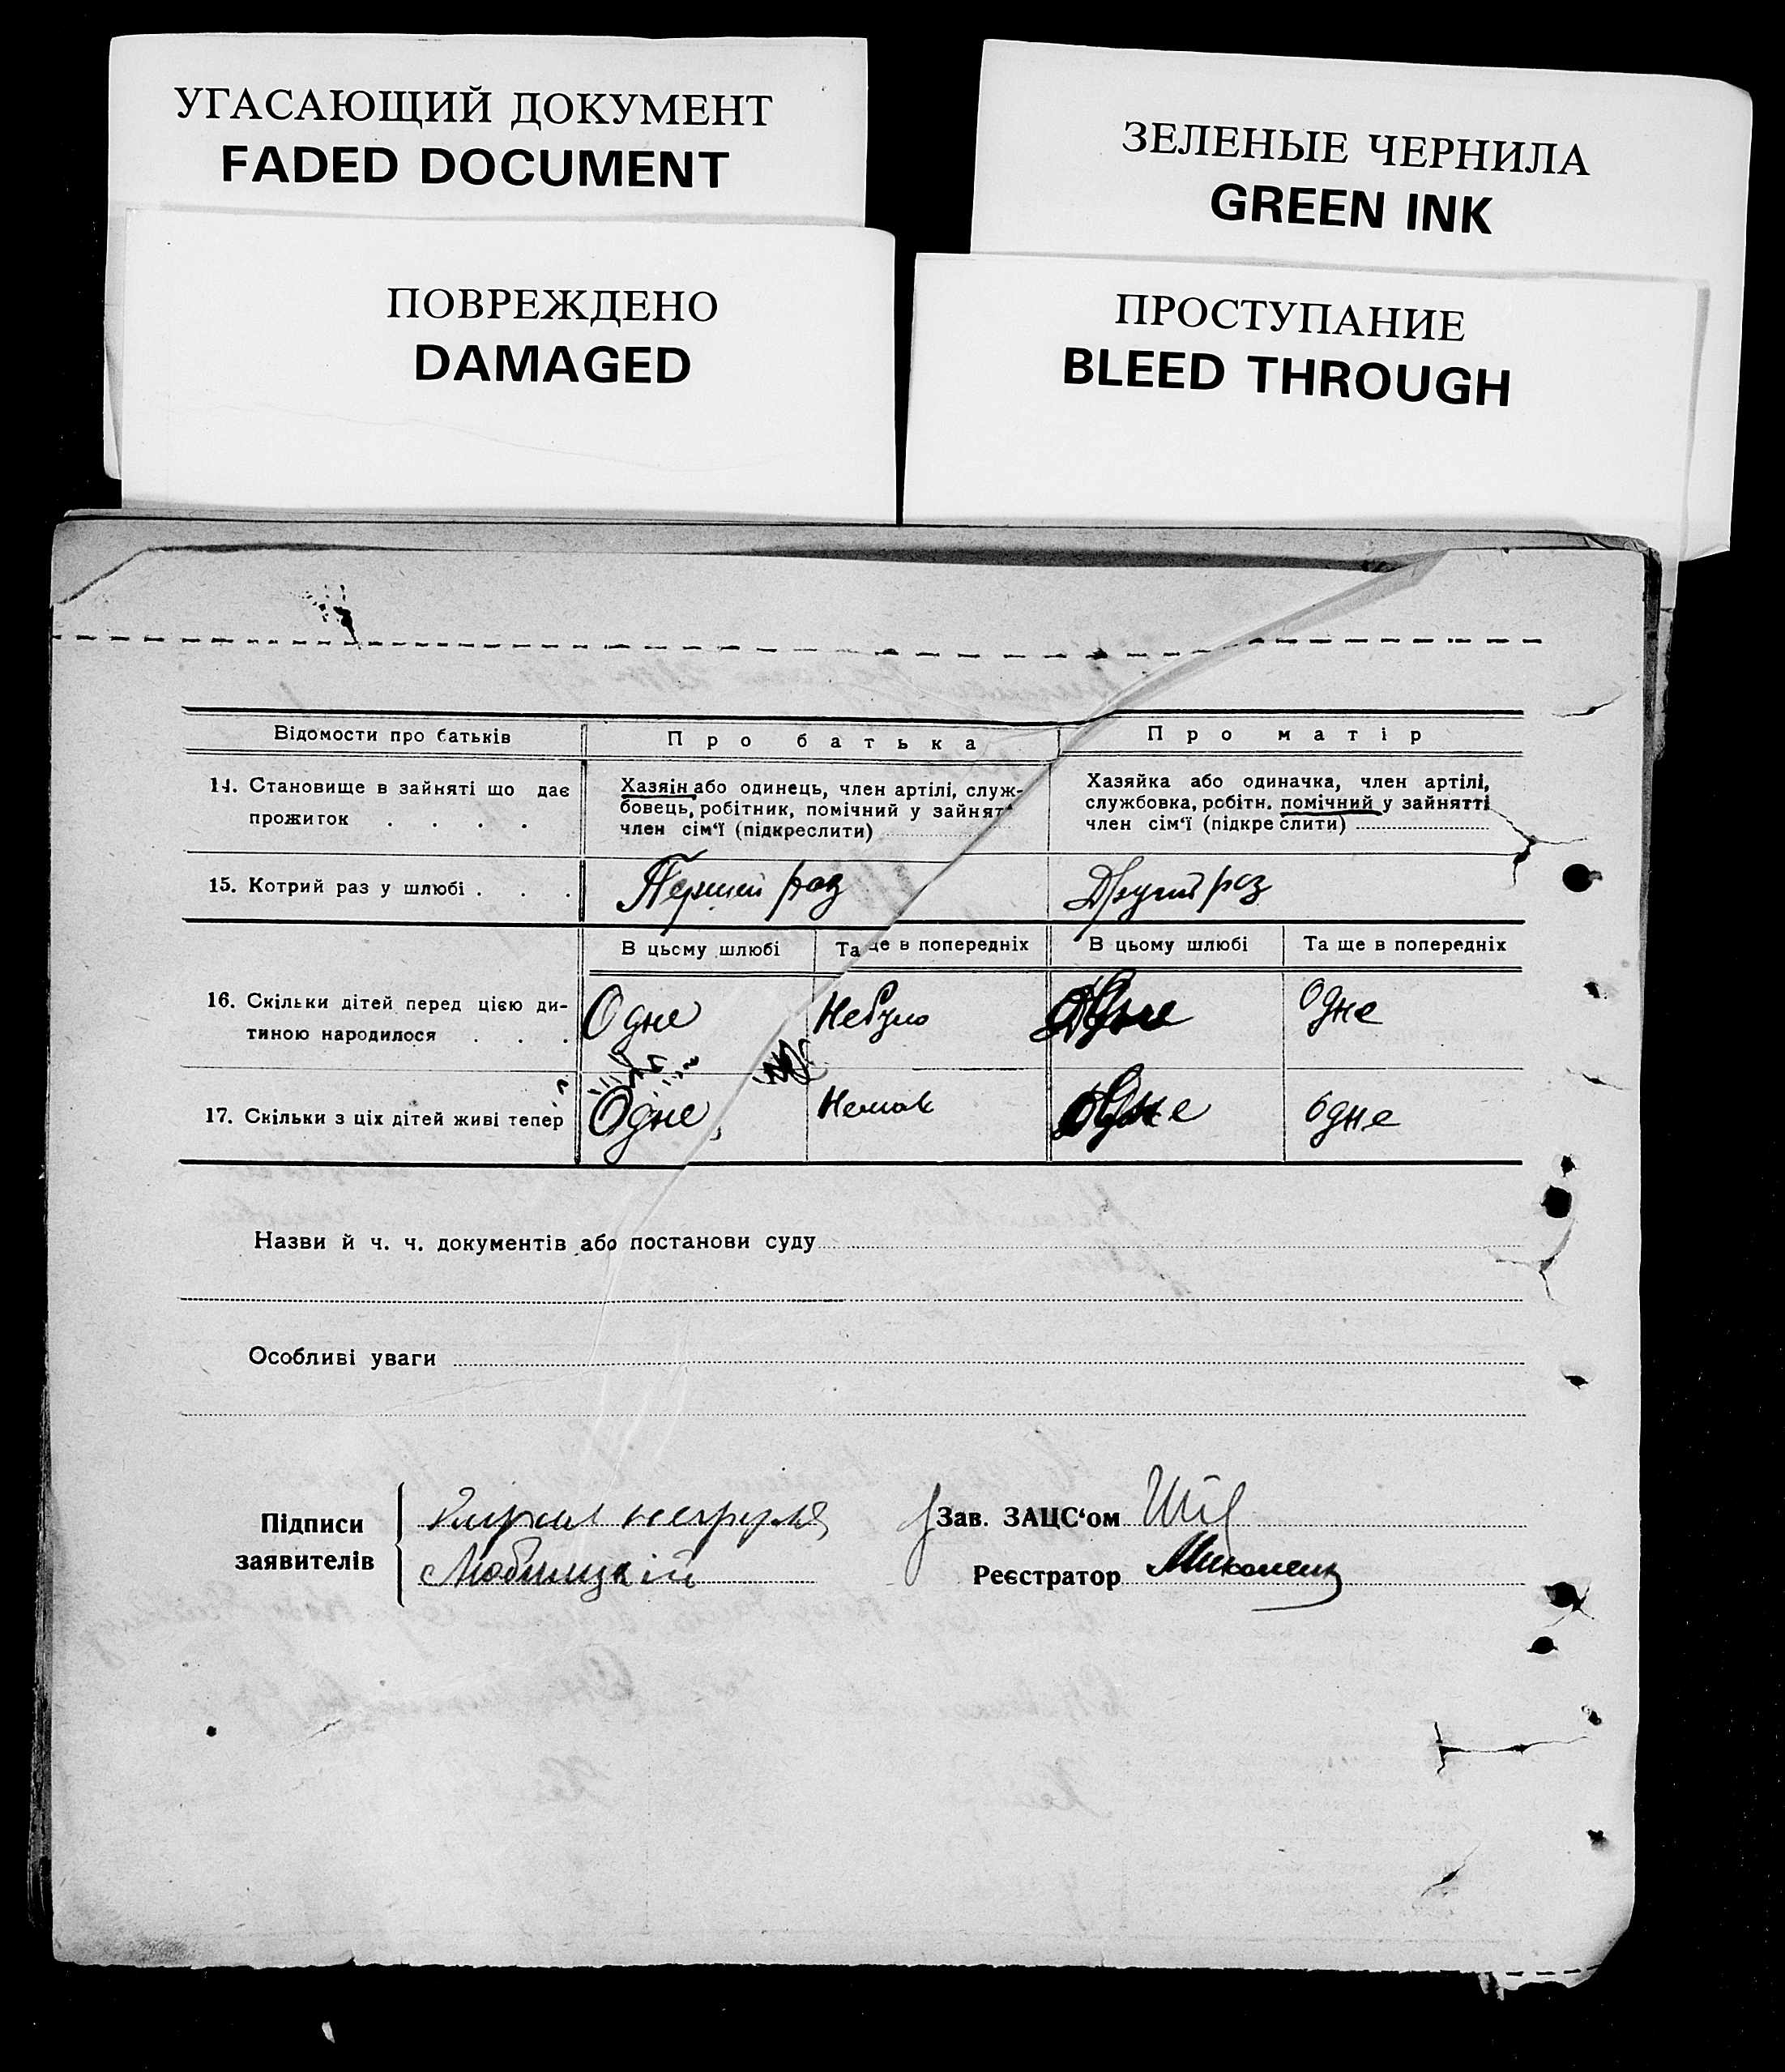 УГАСАЮЩИЙ ДОКУМЕНТ
FADED DOCUMENT
ЗЕЛЕНЫЕ ЧЕРНИЛА
GREEN INK
ПОВРЕЖДЕНО
DAMAGED
ПРОСТУПАНИЕ
BLEED THROUGH
Відомости про батьків
Про батька
Про матір
14. Становище в зайняті що дає
прожиток . . . .
Хазяїн або одинець, член артілі, служ-
бовець, робітник, помічний у зайнят
член сім'ї (підкреслити)
Хазяйка або одиначка, член артілі,
службовка, робітн. помічний у зайнятті
член сім'ї (підкреслити)
15. Котрий раз у шлюбі . . .
Перший раз
Другий раз
В цьому шлюбі
Та ще в попередніх
В цьому шлюбі
Та ще в попередніх
16. Скільки дітей перед цією ди-
тиною народилося . . .
Одне
Небуло
Одне
Одне
17. Скільки з ціх дітей живі тепер
Одне
Немає
Одне
Одне
Назви й ч. ч. документів або постанови суду
Особливі уваги
Підписи
заявителів
Зав. ЗАЦС'ом
Реєстратор